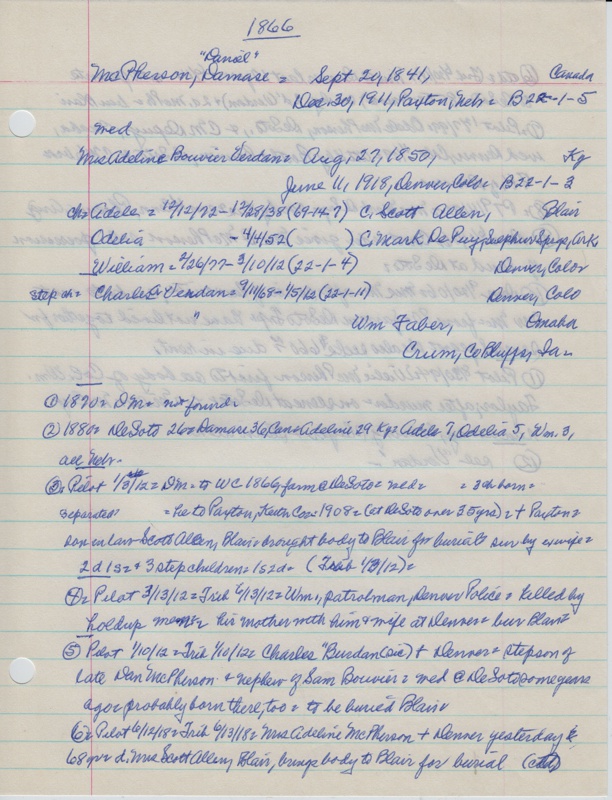 1866
"Daniel"
McPherson, Damase = Sept 20, 1841, Canada
Dec. 30, 1911, Paxton, Neb = B22-1-5
med
Mrs Adeline Bouvier Verdan = Aug, 27, 1850, Ky
June 11, 1918, Denver, Colo = B22-1-3
ch = Adele = 12/12/72 - 12/28/38 (69-14-7) C. Scott Allen, Blair
Odelia - 4/4/52 ( ) C. Mark DePuy, Sulphur Spgs, Ark
William = 2/26/77 - 3/10/12 (22-1-4) Denver, Color
step ch = Charles Verdan = 9/11/68 - 1/5/12 (22-1-11) Denver, Colo
" Wm Faber, Omaha
Crum, Co Bluffs, Ia =
① 1870 = DM = not found
② 1880 = DeSoto 260 = Damase 36, Can = Adeline 29 Ky = Adele 7, Odelia 5, Wm. 3,
all Nebr.
③ = Pilot 1/3/12 = DM = to WC 1866, farm @ DeSoto = med = = 3 ch born =
separated = he to Paxton, Keith Co = 1908 = (at DeSoto over 35 yrs) = + Paxton =
son in law Scott Allen, Blair = brought body to Blair for burial = surv by exwife =
2 d 1s = + 3 stepchildren = 1s2d = (Trib 1/3/12) =
④ = Pilot 3/13/12 = Trib 3/13/12 = Wm., patrolman, Denver Police = killed by
holdup men = his mother with him + wife at Denver = bur Blair =
⑤ Pilot 1/10/12 = Trib 1/10/12 = Charles "Burdan (sic) + Denver = stepson of
late Dan McPherson + nephew of Sam Bouvier = med @ DeSoto some years
ago = probably born there, too = to be buried Blair =
⑥ = Pilot 6/12/18 = Trib 6/13/18 = Mrs Adeline McPherson + Denver yesterday
68 yr = d. Mrs Scott Allen, Blair, brings body to Blair for burial